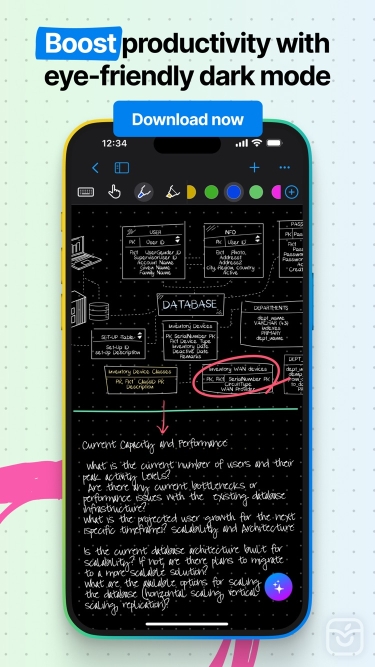 Boost productivity with
eye-friendly dark mode
Download now
12:34
USER
PK User ID
FK1 UserGender ID
SupervisorUser ID
Account Name
Given Name
Family Name
INFO
PK User ID
FK1 Photo
Address1
Address2
City, Region, Country
Active
PASS
PK
FK1
DATABASE
DEPARTMENTS
dept_name
VARCHAR (43)
indexes
PRIMARY
dept_name
SET-UP Table
Set-Up ID
Set-up Description
Inventory Devices
PK SerialNumber PK
FK1 Device Type
Inventory Date
Deactive Date
Remarks
Inventory Device Classes
PK, FK1 ClassID PK
Description
Inventory WAN devices
PK, FK1 SerialNumber PK
CircuitType
WAN Provider
DEPT_
Current Capacity and Performance
What is the current number of users and their
peak activity levels?
Are there any current bottlenecks or
performance issues with the existing database
infrastructure?
What is the projected user growth for the next
specific timeframe? scalability and Architecture
Is the current database architecture built for
scalability? If not, are there plans to migrate
to a more scalable solution?
What are the available options for scaling
the database (horizontal scaling, vertical
scaling, replication)?